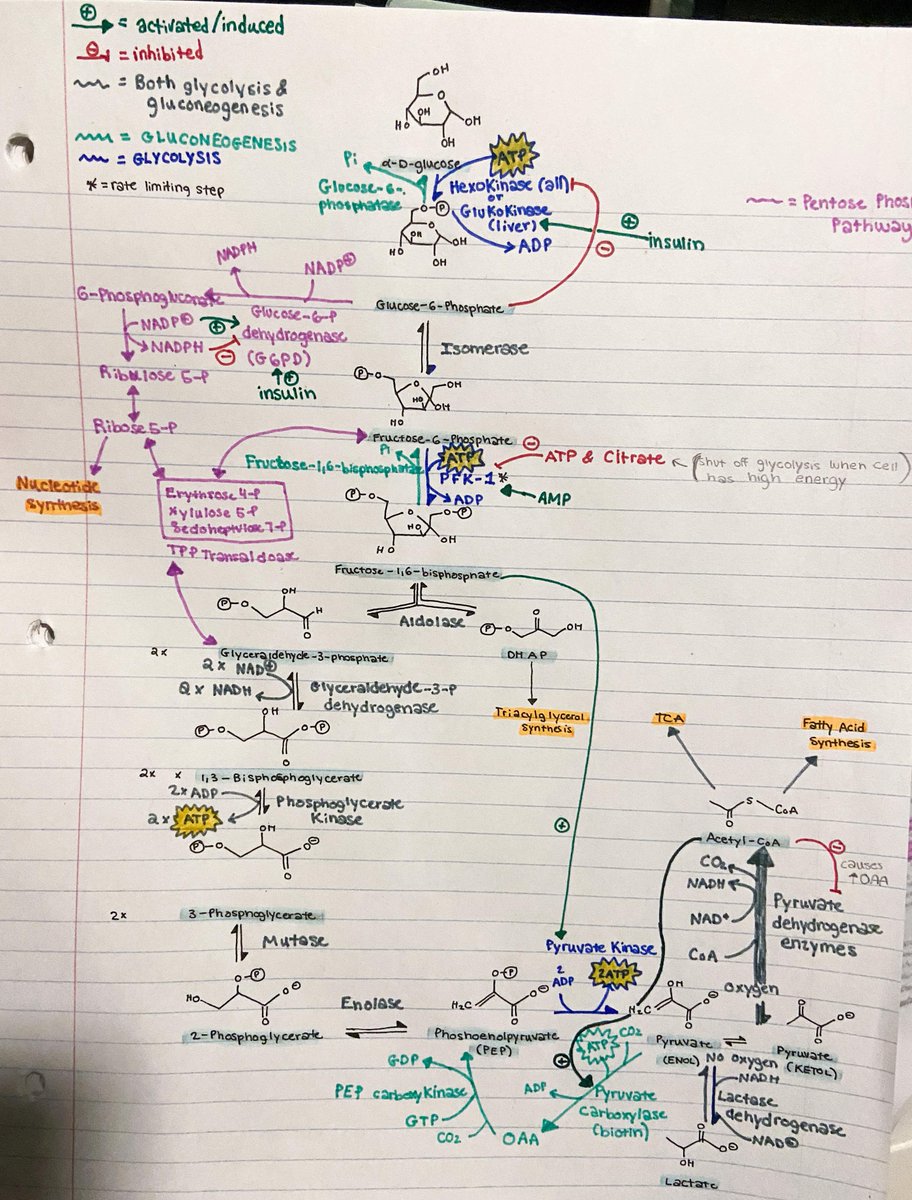 ⊕ = activated/induced
⊖ = inhibited
= Both glycolysis &
gluconeogenesis
= GLUCONEOGENESIS
= GLYCOLYSIS
* = rate limiting step
= Pentose Phos
Pathway
OH
O
OH
HO
OH
OH
α-D-glucose
ATP
Pi
Glucose-6-
phosphatase
Hexokinase (all)
or
Glukokinase
(liver)
ADP
⊕
insulin
⊖
O-P
O
OH
OH
HO
OH
NADPH
NADP⊕
6-Phosphogluconate
Glucose-6-Phosphate
NADP⊕
⊕
Glucose-6-P
dehydrogenase
(G6PD)
NADPH
⊖
⊕
insulin
Isomerase
Ribulose 5-P
P-O
O
OH
HO
OH
HO
Ribose 5-P
Fructose-6-Phosphate
⊖
ATP & Citrate
(shut off glycolysis when cell
has high energy)
Pi
Fructose-1,6-bisphosphatase
ATP
PFK-1*
ADP
AMP
Nucleotide
Synthesis
Erythrose 4-P
Xylulose 5-P
Sedoheptulose 7-P
TPP Transaldoase
P-O
O
O-P
HO
OH
HO
Fructose-1,6-bisphosphate
Aldolase
P-O
OH
H
O
P-O
O
OH
2x
Glyceraldehyde-3-phosphate
DHAP
2x NAD⊕
2x NADH
Glyceraldehyde-3-P
dehydrogenase
Triacylglycerol
Synthesis
TCA
Fatty Acid
Synthesis
P-O
OH
O-P
O
2x
x
1,3-Bisphosphoglycerate
2x ADP
2x ATP
Phosphoglycerate
Kinase
S
CoA
O
⊕
P-O
OH
O⊖
O
Acetyl-CoA
⊖
causes
↑OAA
CO2
NADH
NAD+
CoA
Pyruvate
dehydrogenase
enzymes
oxygen
2x
3-Phosphoglycerate
Mutase
Pyruvate Kinase
2
ADP
2ATP
HO
O-P
O⊖
O
Enolase
H2C
O-P
O⊖
O
H2C
OH
O⊖
O
O
O⊖
O
2-Phosphoglycerate
Phoshoenolpyruvate
(PEP)
Pyruvate
(ENOL)
No oxygen
Pyruvate
(KETOL)
GDP
PEP carboxykinase
GTP
CO2
OAA
⊕
ATP
CO2
ADP
Pyruvate
carboxylase
(biotin)
NADH
Lactase
dehydrogenase
NAD⊕
O
O⊖
OH
Lactate